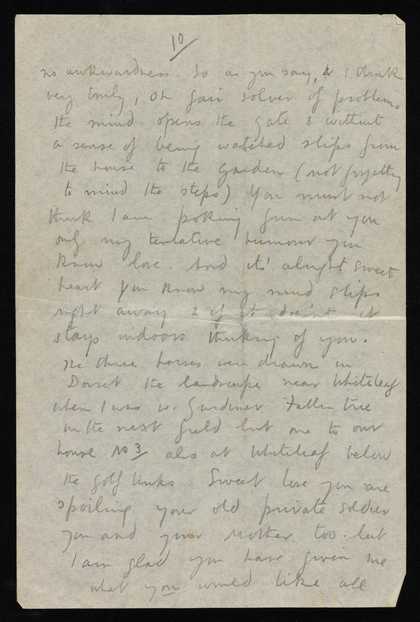 10
no awkwardness. So as you say, & I think
very truly, Oh fair solver of problems
the mind opens the gate & without
a sense of being watched slips from
the house to the garden (not forgetting
to mind the steps) You must not
think I am poking fun at you
only my tentative humour you
know love. And it's alright sweet
heart you know my mind slips
right away & if it doesn't it
stays indoors thinking of you.
The three horses were drawn in
Dorset the landscape near Whiteleaf
when I was w. Gardiner Fallen tree
in the next field but one to our
house No 3 also at Whiteleaf below
the golf links Sweet love you are
spoiling your old private soldier
you and your Mother too. but
I am glad you have given me
what you would like all